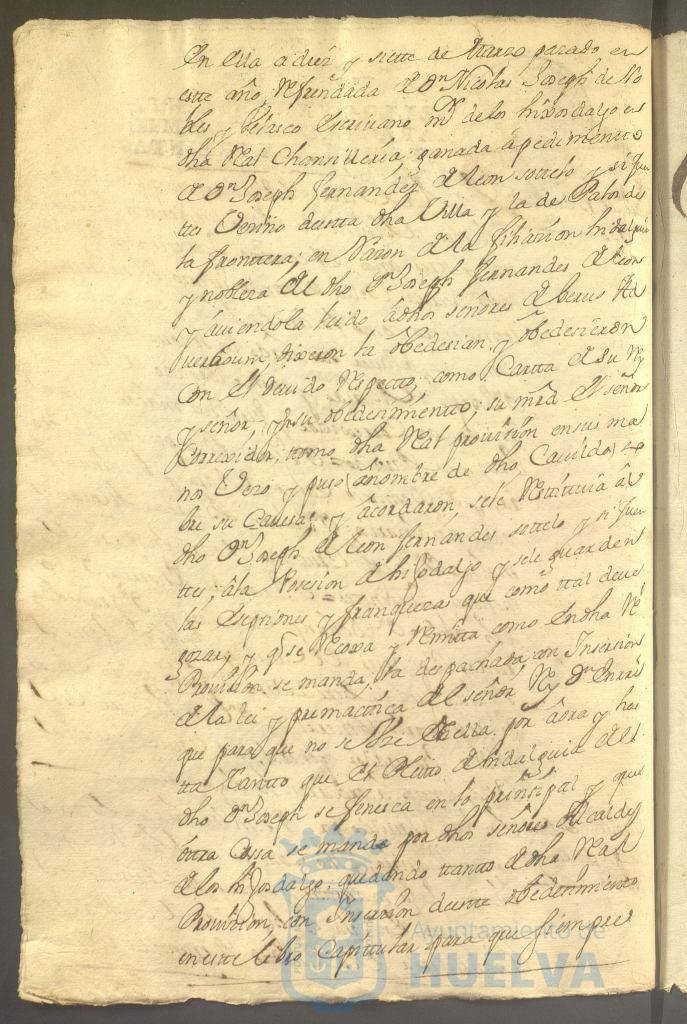 en ella a diez y siette de Marzo pasado en
este año, Refrendada de Dn Nicolás Joseph de Ro
bles y Velasco Escrivano mr de los hixosdalgo en
dha Real Chanzilleria; ganada a pedimento
de Dn Joseph fernandez de leon sottelo y si fuen
tes Vezino de esta dha Villa y la de Palos de
la fronttera, en Razon de la filiazion hidalguia
y nobleza del dho Dn Joseph fernandes de leon
y aviendola leido a dhos señores de
dixeron la obedesian y obedesieron
Con el devido Respecto, como Cartta de su Rey
y señor, y en su obedesimientto, su mrd el señor
Correxidor, tomo dha Real provision en sus ma
nos Vezo y puso (a nombre de dho Cavildo) so
bre su Caveza; y acordaron, se le Restituia al
dho Dn Joseph de leon fernandes sottelo y si fuen
ttes, a la Posesion de hixodalgo y se le guarden
las esepziones y franquezas que como ttal deve
gozar, y qe se Recoxa y Remitta como en dha Rl
Provision se manda, la despachada con Insersion
de la lei y premactica del señor Rey Dn Enrri
que para que no se Vse de ella por aora y has
ta tantto que el Pleito de hidalguia del
dho Dn Joseph se fenesca en lo prinsipal y que
ottra Cosa se manda por dhos señores Alcaldes
de los hixosdalgo, quedando ttanto de dha Real
Provision, con Insersion de este obedesimiento
en este libro Capitular para que siempre
Ayuntamiento de
HUELVA